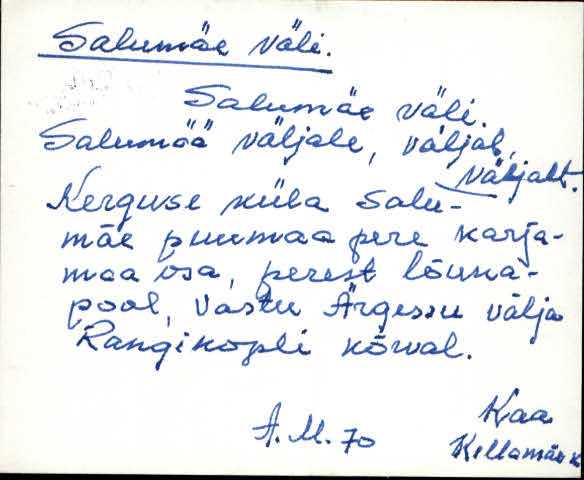 Salumäe väli.
Salumäe väli.
Salumää väljale, väljal,
väljalt.
Kerguse küla Salu-
mäe puumaa pere karja-
maa osa, perest lõuna-
pool, vastu Ärgessu välja
Rangikopli kõrval.
Kaa
A.M. 70
Killamäe k.